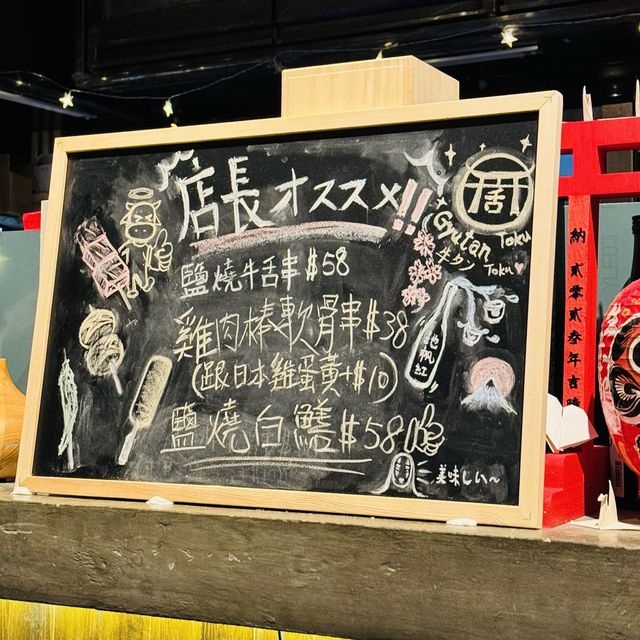 店長オススメ!!
鹽燒牛舌串$58
雞肉棒軟骨串$38
(跟日本雞蛋黃+$10)
鹽燒白鱔$58
居
Gyutan
ギタン
Toku
Toku
美味しい~
納 貳零貳叁年吉時